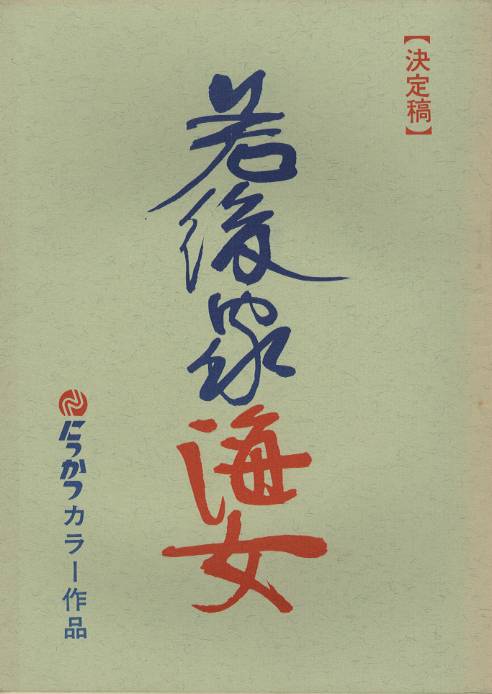 【決定稿】
若後家
海女
にっかつカラー作品